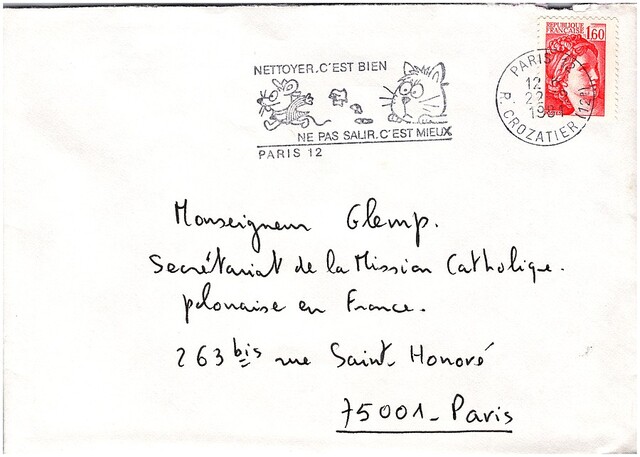 NETTOYER.C'EST BIEN
NE PAS SALIR.C'EST MIEUX
PARIS 12
REPUBLIQUE
FRANÇAISE 1,60
PARIS
12
22
1984
R. CROZATIER (12e)
Monseigneur Glemp.
Secrétariat de la Mission Catholique.
polonaise en France.
263 bis rue Saint-Honoré
75001-Paris